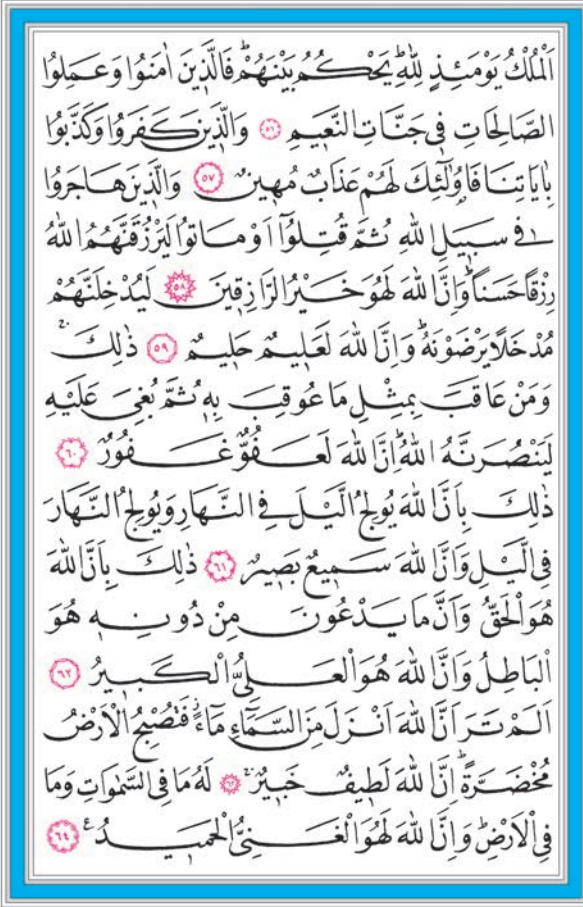 اَلْمُلْكُ يَوْمَئِذٍ لِلّٰهِۜ يَحْكُمُ بَيْنَهُمْۜ فَالَّذ۪ينَ اٰمَنُوا وَعَمِلُوا
الصَّالِحَاتِ ف۪ي جَنَّاتِ النَّع۪يمِ ﴿٥٦﴾ وَالَّذ۪ينَ كَفَرُوا وَكَذَّبُوا
بِاٰيَاتِنَا فَاُو۬لٰٓئِكَ لَهُمْ عَذَابٌ مُه۪ينٌ ﴿٥٧﴾ وَالَّذ۪ينَ هَاجَرُوا
ف۪ي سَب۪يلِ اللّٰهِ ثُمَّ قُتِلُٓوا اَوْ مَاتُوا لَيَرْزُقَنَّهُمُ اللّٰهُ
رِزْقًا حَسَنًاۜ وَاِنَّ اللّٰهَ لَهُوَ خَيْرُ الرَّازِق۪ينَ ﴿٥٨﴾ لَيُدْخِلَنَّهُمْ
مُدْخَلًا يَرْضَوْنَهُۜ وَاِنَّ اللّٰهَ لَعَل۪يمٌ حَل۪يمٌ ﴿٥٩﴾ ذٰلِكَۚ
وَمَنْ عَاقَبَ بِمِثْلِ مَا عُوقِبَ بِه۪ ثُمَّ بُغِيَ عَلَيْهِ
لَيَنْصُرَنَّهُ اللّٰهُۜ اِنَّ اللّٰهَ لَعَفُوٌّ غَفُورٌ ﴿٦٠﴾
ذٰلِكَ بِاَنَّ اللّٰهَ يُولِجُ الَّيْلَ فِي النَّهَارِ وَيُولِجُ النَّهَارَ
فِي الَّيْلِ وَاَنَّ اللّٰهَ سَم۪يعٌ بَص۪يرٌ ﴿٦١﴾ ذٰلِكَ بِاَنَّ اللّٰهَ
هُوَ الْحَقُّ وَاَنَّ مَا يَدْعُونَ مِنْ دُونِه۪ هُوَ
الْبَاطِلُ وَاَنَّ اللّٰهَ هُوَ الْعَلِيُّ الْكَب۪يرُ ﴿٦٢﴾
اَلَمْ تَرَ اَنَّ اللّٰهَ اَنْزَلَ مِنَ السَّمَٓاءِ مَٓاءًۘ فَتُصْبِحُ الْاَرْضُ
مُخْضَرَّةًۜ اِنَّ اللّٰهَ لَط۪يفٌ خَب۪يرٌۚ ﴿٦٣﴾ لَهُ مَا فِي السَّمٰوَاتِ وَمَا
فِي الْاَرْضِۜ وَاِنَّ اللّٰهَ لَهُوَ الْغَنِيُّ الْحَم۪يدُ۟ ﴿٦٤﴾